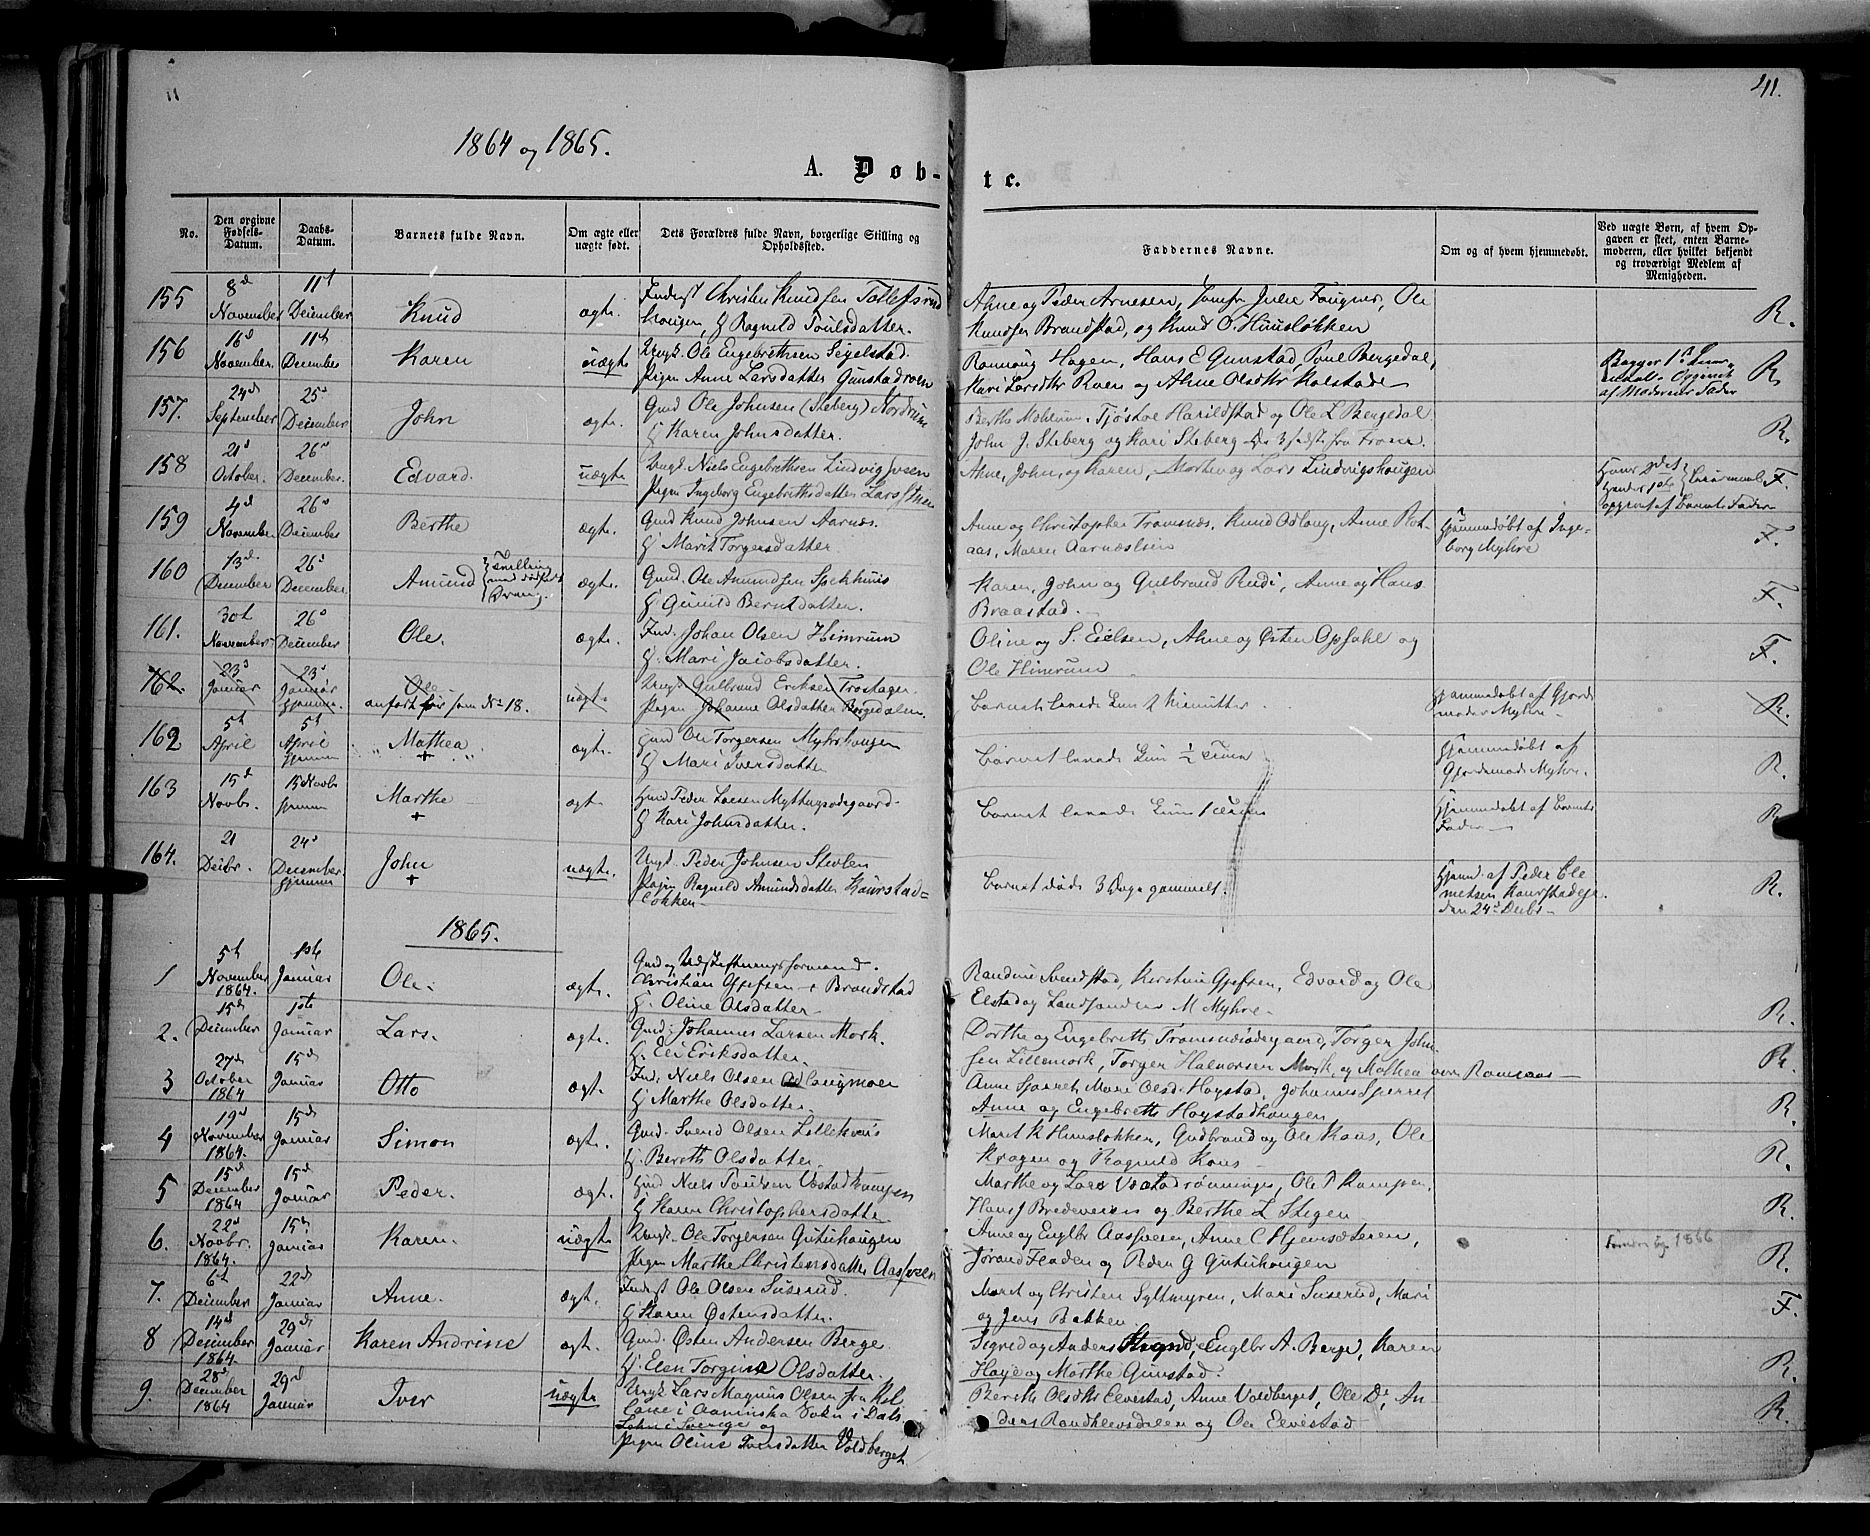 41.
1864 og 1865.
A. Døb-
te.
No.
Den opgivne Fødsels-Datum.
Daabs-Datum.
Barnets fulde Navn.
Om ægte eller uægte født.
Dets Forældres fulde Navn, borgerlige Stilling og Opholdssted.
Faddernes Navne.
Om og af hvem hjemmedøbt.
Ved uægte Børn, af hvem Opgaven er skeet, enten Barnemoderen, eller hvilket bekjendt og troværdigt Medlem af Menigheden.
155 8d November 11t December Knud ægte. Inderst Christen Knudsen Tollefsrud
hougen, H Ragnild Poulsdatter.
Ahne og Peder Arnesen, Jomfr Julie Fougner, Ole
Knudsen Brandstad, og Knud O. Huusløkken
R.
156 16d November 11te December Karen uægte Ungk. Ole Engebrethsen Segelstad.
Pigen Anne Larsdatter Gunstadroen
Rannoug Hagen, Hans E Gunstad, Poul Bergedal,
Kari Larsdtr Roen og Ahne Olsdtr Kolstad
af Moderens Fader
R.
157. 24d September 25d December John ægte. Gmd Ole Johnsen (Steberg) Nordrum
H Karen Johnsdatter.
Tjøstov Harildstad og Ole L Bergedal
John J. Steberg og Kari Steberg
R.
158 21d October. 26d December. Edvard. uægte Ungk. Niels Engebrethsen Lindvigsveen
Pigen Ingeborg Engebrethsdatter
Ahne, John, og Karen, Morten og Lars Lindvigshougen
opgivet af Barnets Fader
F.
159 4d November 26d December Berthe ægte. Gmd Knud Johnsen Aarnæs.
H Marit Torgersdatter.
Anne og Christopher Tromsnæs, Knud Odloug, Anne Rot-
aas, Maren Aarnæslien
Hjemmedøbt af Inge-
borg Myhre
F.
160 13d. December 26d December Amund Tvilling
med dødfødt
Dreng. ægte. Gmd. Ole Amundsen Spekhuus
H Gunild Berntdatter.
Karen, John og Gulbrand Rudi, Anne og Hans
Braastad.
F.
161. 30t November 26d December Ole. ægte. Ind. Johan Olsen Himrum
H. Mari Jacobsdatter.
Oline og S. Eielsen, Ahne og Østen Opsahl og
Ole Himrum
F.
162. 23d Januar 23d Januar hjemme Ole
anført før som No 18. uægte Ungk Gulbrand Eriksen Trostager
Pigen Johanne Olsdatter Bergedalen.
Barnet levede kun 2 Minutter.
Hjemmedøbt af Gjord-
moder Myhre
R.
162 5t April 5t April hjemme Mathea + ægte. Gmd Ole Torgersen Myhrhougen
H Mari Iversdatter
Barnet levede kun 1/2 Time
Hjemmedøbt af
Gjordemod. Myhre.
R.
163 15d Novbr. 15 Novbr hjemme Marthe + ægt. Hmd Peder Larsen Myttingsødegaard
H Kari Johnsdatter.
Barnet levede kun 1 Time
Hjemmedøbt af Barnets
Fader
R.
164. 21 Decbr. 24d December hjemme John + uægte. Ungk. Peder Johnsen Stevlen
Pigen Ragnild Amundsdatter Kaurstad-
løkken
Barnet døde 3 Dage gammelt.
Hjemd af Peder Cle
metsen Kaurstadeje.
den 24d Decbr
R.
1865.
1 5t November 1864. 1ste Januar Ole. ægte. Gmd og Udskiftningsformand.
Christian Gjefsen Brandstad
H. Oline Olsdatter
Randine Svendstad, Kirstine Gjefsen, Edvard og Ole
Elstad og Landhandler M Myhre
R.
2. 15d December 1ste Januar Lars. ægte. Gmd. Johannes Larsen Mork.
H. Eli Eriksdatter.
Dorthe og Engebreth Tromsnæsødegaard, Torger John-
sen Lillemork, Torger Halvorsen Mork, og Mathea
R.
3 27d October 1864 15d Januar Otto ægt Ind. Niels Olsen Odlougmoen
H Marthe Olsdatter.
Anne Sperret, Mari Olsd. Høystad, Johannes Sperret
Anne og Engebreth Høystadhaugen
R.
4 19d November 1864. 15d Januar Simon ægt. Gmd. Svend Olsen Lillekruis
H. Bereth Olsdatter
Maret K Huusløkken, Gudbrand og Ole Kaus, Ole
Kragen og Ragnild Kaus
R.
5 15d December 1864 15d Januar Peder. ægt. Hmd Niels Poulsen Vedstadhaugen
H Karen Christophersdatter
Marthe og Lars Vedstadrønningen, Ole P Kampen,
Hans J Bredeveien og Berthe L Stegen
R.
6. 22d Novbr. 1864. 15d Januar Karen. uægte Ungk. Ole Torgersen Gutuhaugen
Pigen Marthe Christensdatter Aasveen
Anne og Englbr Aasveen, Anne C Hjemsæteren,
Jørand Fladen og Peder G Gutuhaugen
1866
R.
7. 6t December 22d Januar Anne. ægt. Inderst Ole Olsen Suserud.
H Karen Østensdatter.
Maret og Christen Syltmyren, Mari Suserud, Mari
og Jens Bakken
F.
8 14d December 1864. 29d Januar Karen Andrine ægt. Gmd. Østen Andersen Berge
H. Elen Torgine Olsdatter.
Sigrid og Anders Stegnd, Englbr A. Berge, Karen
Haye og Marthe Gunstad.
R.
9. 28d December 1864 29d Januar Iver uægte Ungk. Lars Magnus Olsen fra Kol
i Dals
Lehn i Sverige og
Pigen Oline Iversdatter Voldberget
Bereth Olsdtr Elvestad, Anne Voldberget, Ole Do, An-
ders Randklevsdalen og Ole Elvestad
R.